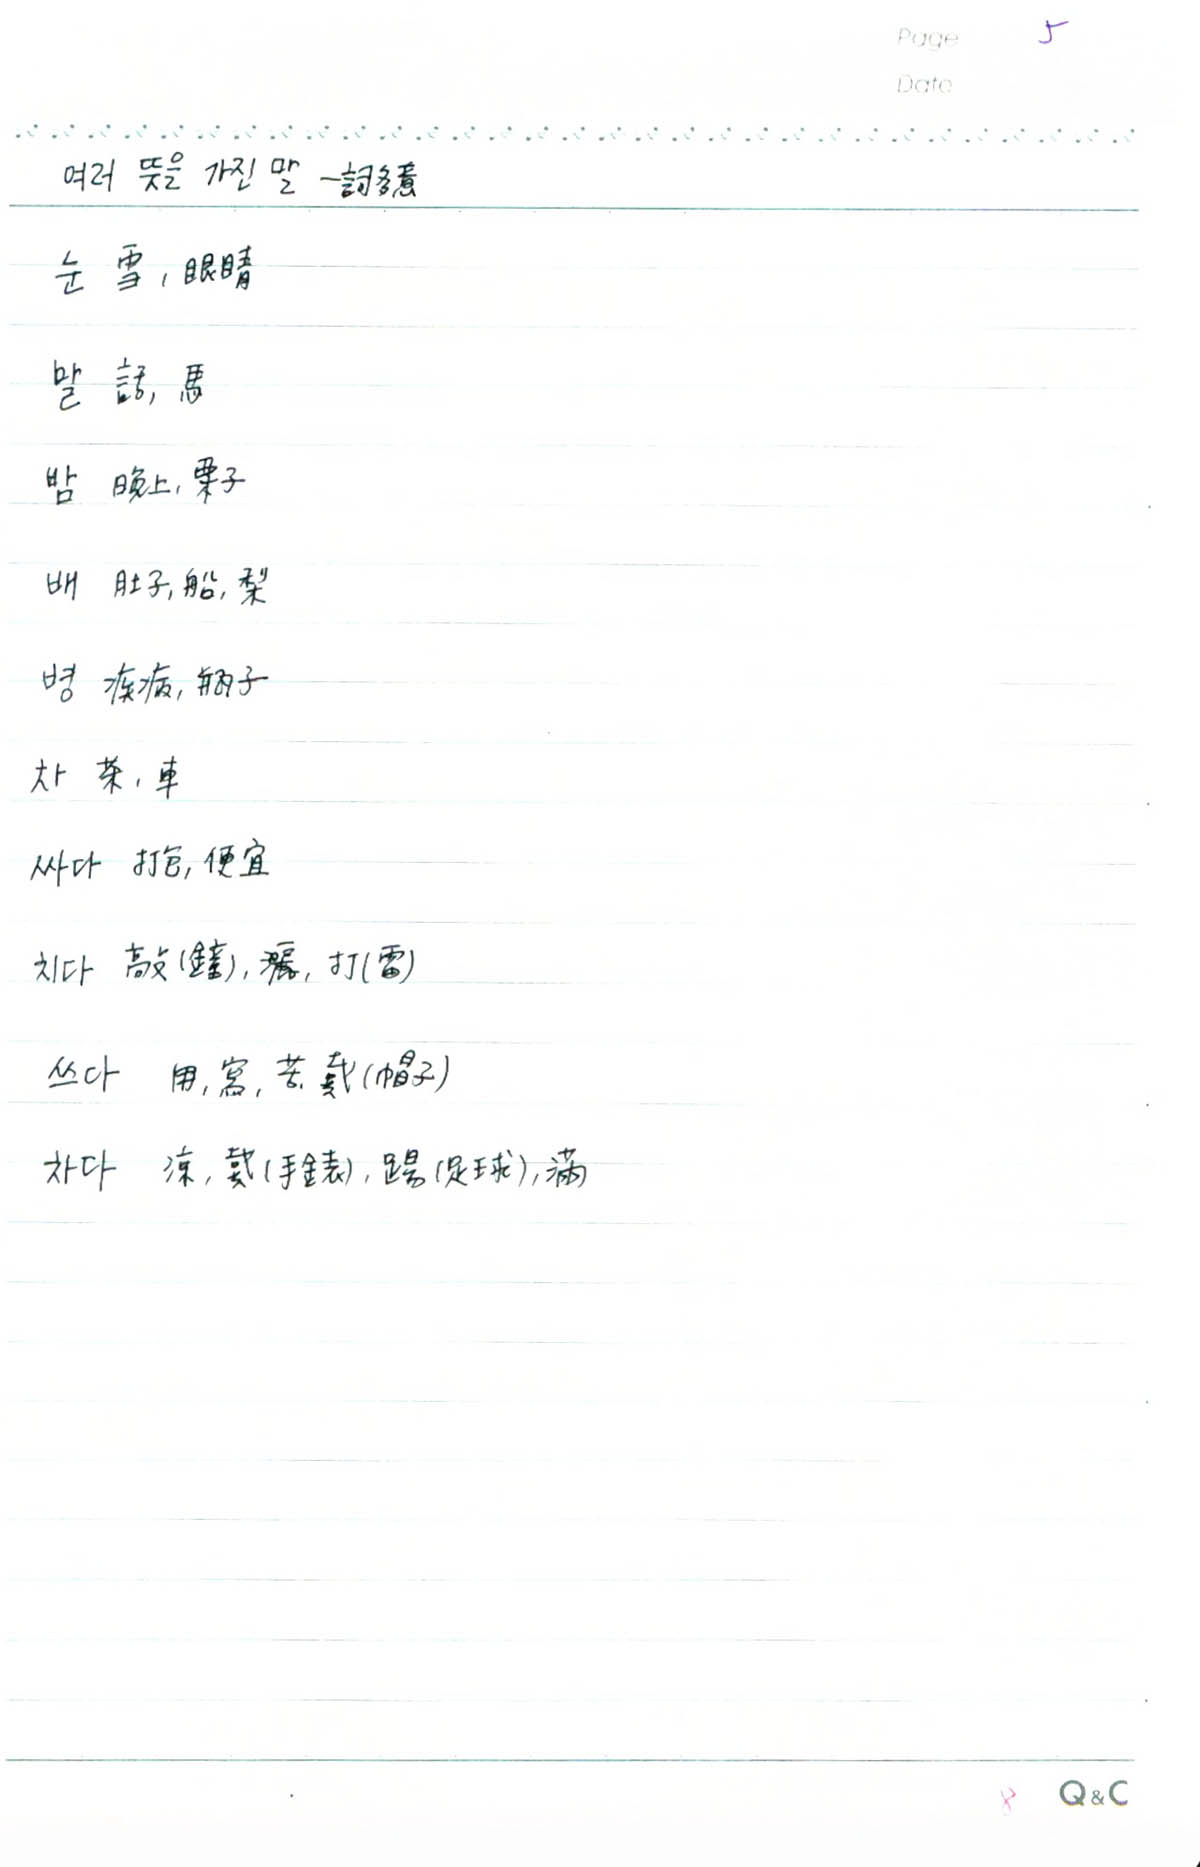 Page 5
Date
여러 뜻을 가진 말 一詞多意
눈 雪, 眼睛
말 話, 馬
밤 晚上, 栗子
배 肚子, 船, 梨
병 疾病, 瓶子
차 茶, 車
싸다 打包, 便宜
치다 敲(鐘), 灑, 打(雷)
쓰다 用, 寫, 苦, 戴(帽子)
차다 涼, 戴(手錶), 踢(足球), 滿
8 Q&C